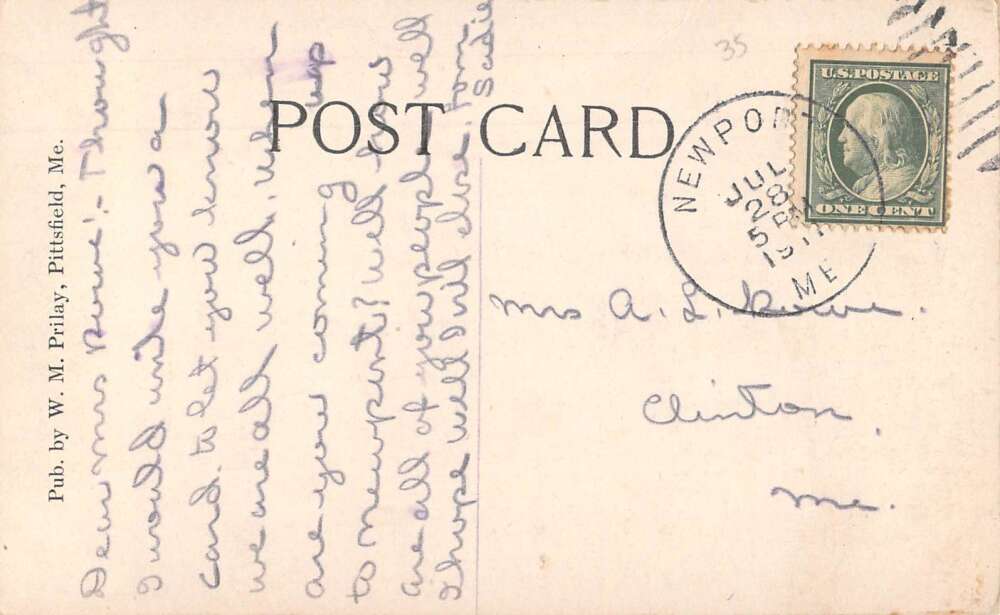 POST CARD
Pub. by W. M. Prilay, Pittsfield, Me.
35
U.S. POSTAGE
ONE CENT
NEWPORT
JUL
28
5 PM
1911
ME
Dear Mrs Rowe:- Thought
I would write you a
card to let you know
we are all well. When
are you coming up
to Newport? Well how
are all of your people well
I hope well I will close. from
Sadie
Mrs A. L. Rowe.
Clinton,
Me.